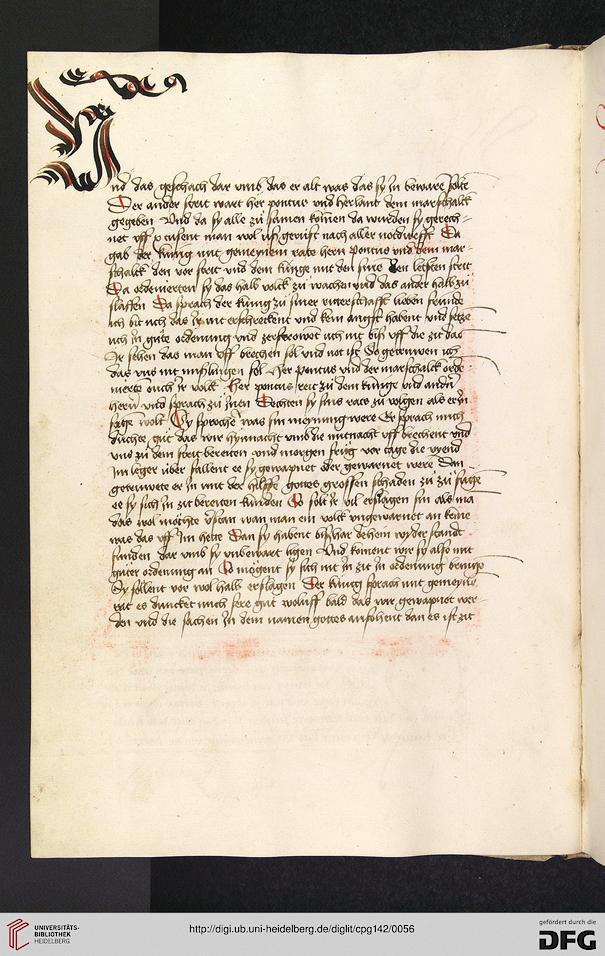 Vnd das geschach dar vmb das er alt was das sy jn beware solte
Der ander streit wart her pontus vnd herlant dem marschalck
gegeben Vnd da sy alle zů samen komen da wurden sy gerech-
net vff x tusent man wol vß gerust nach aller notdurfft Da
gab der kunig mit gemeynem rate hern pontus vnd dem mar-
schalck den vor streit vnd dem kunge mit den sinen den letsten streit
Da ordenierten sy das halb volck zů wachen vnd das ander halb zů
slaffen Da sprach der kunig zů siner ritterschafft lieben frunde
ich bit uch das ir nit erschreckent vnd kein angst habent vnd setze
uch jn gůte ordenung vnd zerstrowet uch nit biß vff die zit das
Ir sehen das man vff brechen sol vnd not ist So getruwen ich
das vns nit mißlingen sol Her pontus vnd der marschalck orde-
nierte ouch ir volk Her pontus reit zů dem kunige vnd andn
hern vnd sprach zů jnen sy sins rats zů volgen als er jn
sagen wolt Sy sprochen was sin meynung were Er sprach mich
duchte gůt das wir hynnacht vmb die mitnacht vff brechent vnd
vns zů dem streit bereiten vnd morgen frůg vor tage die vyend
jm leger über fallent ee sy gewapnet oder gewarnet were Dan
getruwete er jn mit der hilffe gottes grossen schaden zů zů fůge
ee sy sich zů zit bereiten kunden So solt ir vil erslagen sin als ma
das wol möchte wan man ein volk vngewarnet an keme
was das vff jm hette Dan sy habent bißhar dehein wyder standt
funden dar vmb sy vnbewart ligen Vnd koment wir sy also mit
gůter ordenung an So mögent sy sich nit jn zit jn ordenung
Sy sollent vor wol halb erslagen Der kunig sprach mit gemeyne
rat es duncket mich sere gůt woluff bald das wir gewapnet wer-
den vnd die sachen jn dem namen gottes anfohent dan es ist zit
UNIVERSITÄTS-
BIBLIOTHEK
HEIDELBERG
http://digi.ub.uni-heidelberg.de/diglit/cpg142/0056
gefördert durch die
DFG